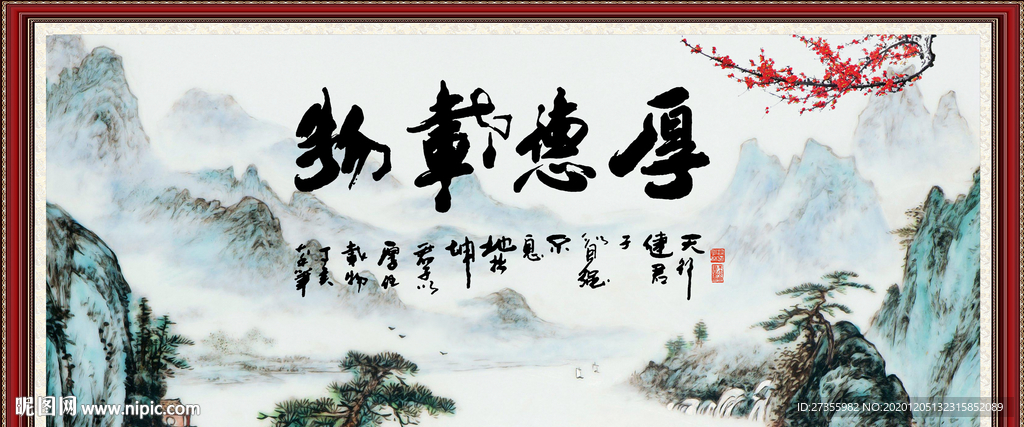 厚德載物
天行
健君
子
以自强
不
息
地势
坤
君子以
厚德
載物
丁亥
昵图网 www.nipic.com
ID:27355982 NO:20201205132315852089